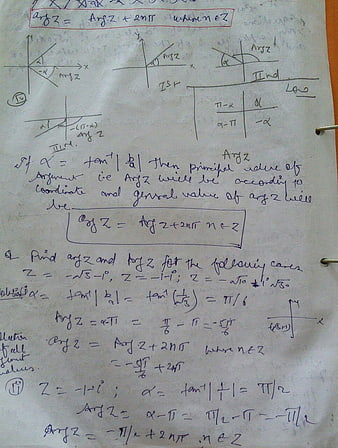 arg Z = Arg Z + 2nπ where n∈Z
y
x
Arg Z
y
Arg Z
Ist
α
Arg Z
IInd
α
-(π-α)
Arg Z
IIIrd
π-α | α
α-π | -α
Arg Z
If α = tan⁻¹ |b/a| then principal value of
argument i.e Arg Z will be according to
coordinate and general value of arg Z will
be
arg Z = Arg Z + 2nπ n∈Z
Q. Find arg Z and Arg Z for the following cases
Z = -√3-i, Z = -1-i; Z = -√10
α = tan⁻¹ |b/a| = tan⁻¹ (1/√3) = π/6
Arg Z = α-π = π/6 - π = -5π/6
arg Z = Arg Z + 2nπ where n∈Z
= -5π/6 + 2nπ
(ii) Z = -1-i ; α = tan⁻¹ |1/1| = π/2
Arg Z = α-π = π/2 - π = -π/2
arg Z = -π/2 + 2nπ n∈Z